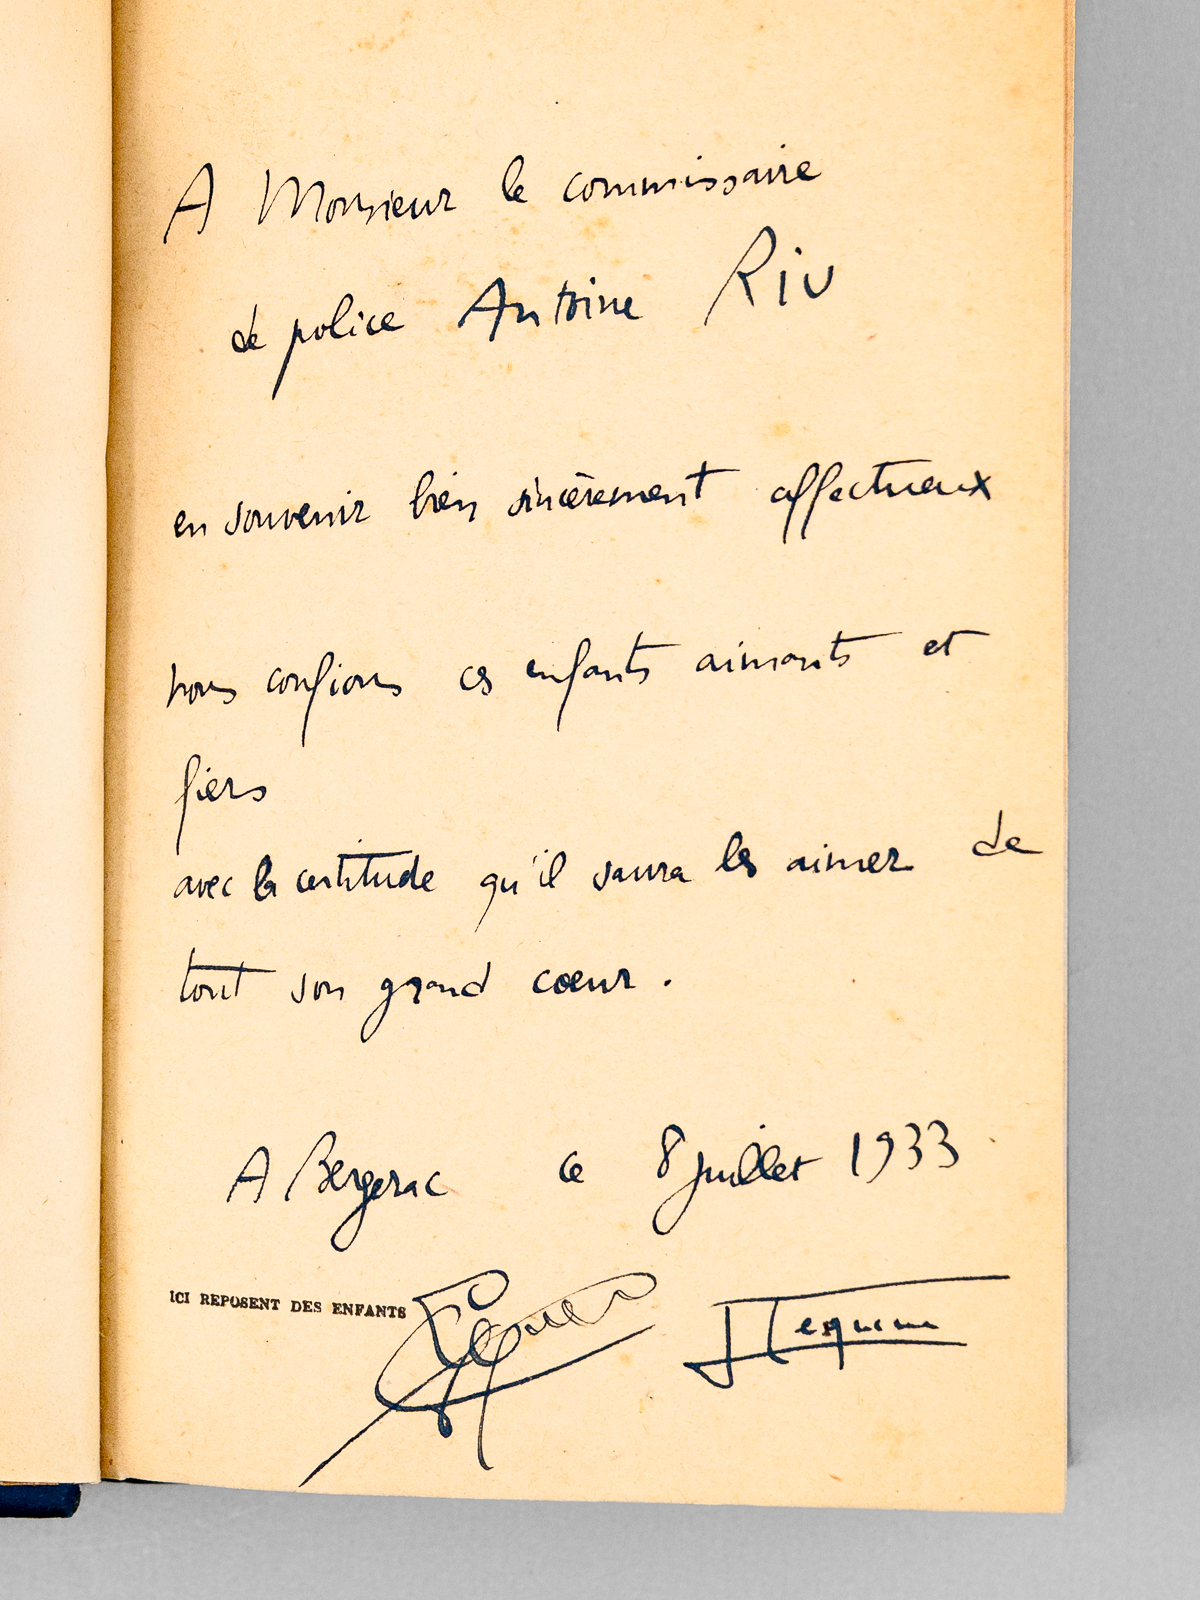 A Monsieur le commissaire
de police Antoine Riu
en souvenir bien sincèrement affectueux
nous confions ces enfants aimants et
fiers
avec la certitude qu'il saura les aimer de
tout son grand cœur.
A Bergerac ce 8 juillet 1933
ICI REPOSENT DES ENFANTS